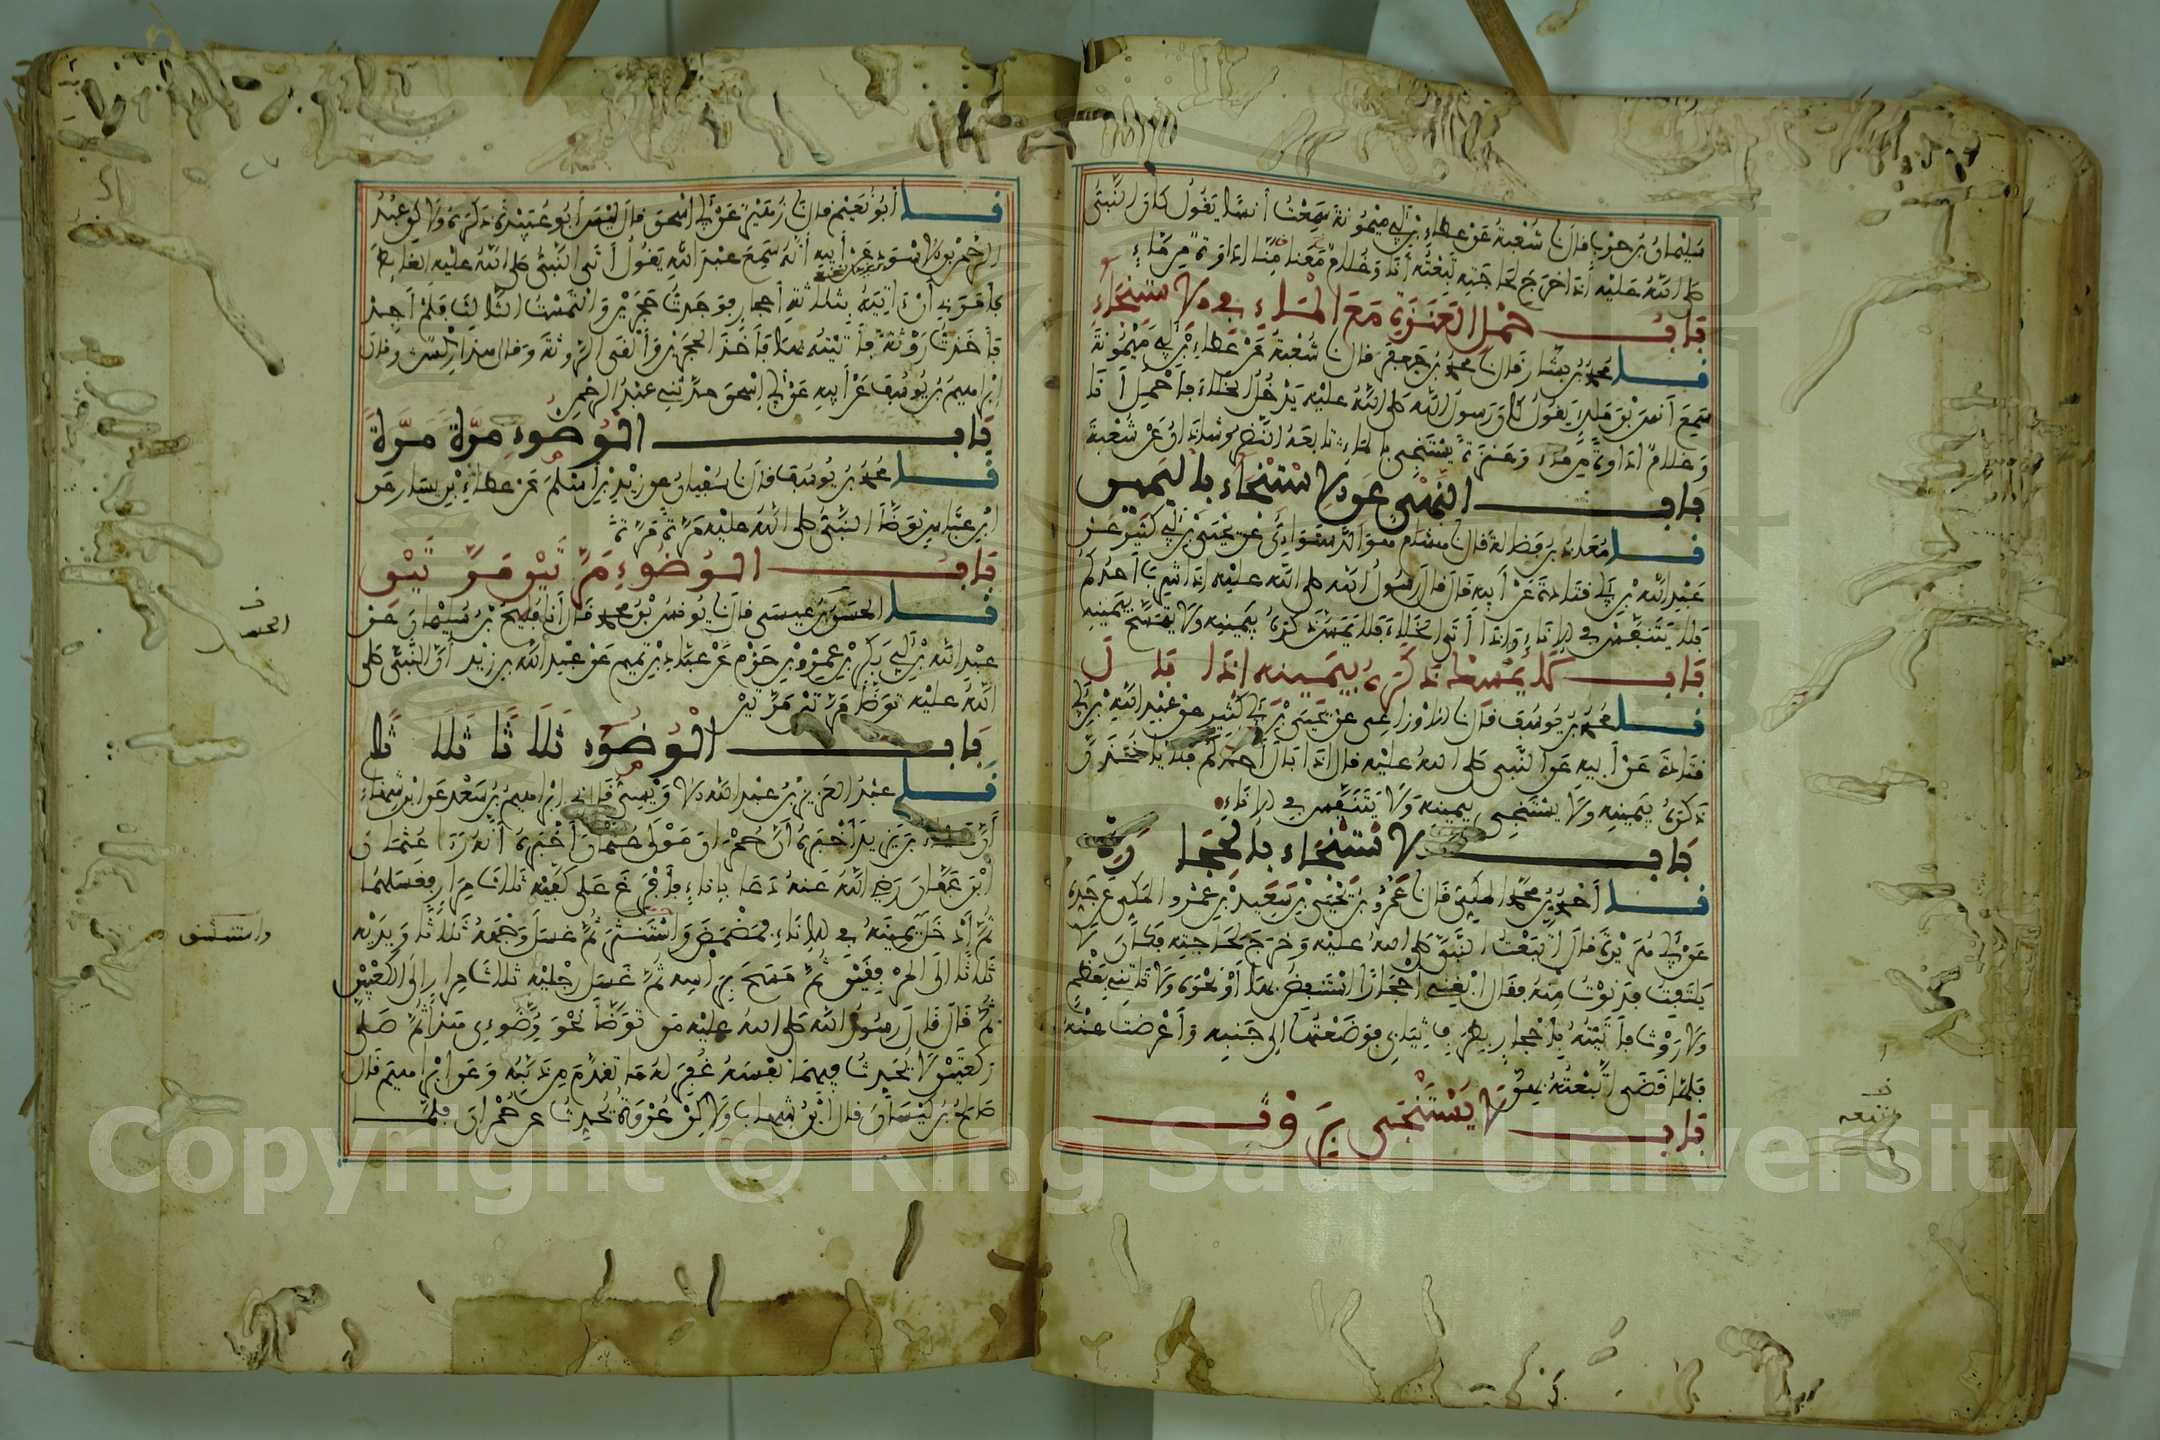 سليمان بن حرب قال نا شعبة عن عطاء بن أبي ميمونة سمعت أنسا يقول كان النبي
صلى الله عليه إذا خرج لحاجته تبعته أنا وغلام معنا منا إداوة من ماء
باب حمل العنزة مع الماء في الاستنجاء
نا محمد بن بشار قال نا محمد بن جعفر قال نا شعبة عن عطاء بن أبي ميمونة
سمع أنس بن مالك يقول كان رسول الله صلى الله عليه يدخل الخلاء فأحمل أنا
وغلام إداوة من ماء وعنزة يستنجي بالماء تابعه النضر وشاذان عن شعبة
باب النهي عن الاستنجاء باليمين
نا معاذ بن فضالة قال نا هشام هو الدستوائي عن يحيى بن أبي كثير عن
عبد الله بن أبي قتادة عن أبيه قال قال رسول الله صلى الله عليه إذا شرب أحدكم
فلا يتنفس في الإناء وإذا أتى الخلاء فلا يمس ذكره بيمينه ولا يتمسح بيمينه
باب لا يمسك ذكره بيمينه إذا بال
نا محمد بن يوسف قال نا الأوزاعي عن يحيى بن أبي كثير عن عبد الله بن أبي
قتادة عن أبيه عن النبي صلى الله عليه قال إذا بال أحدكم فلا يأخذن
ذكره بيمينه ولا يستنجي بيمينه ولا يتنفس في الإناء
باب الاستنجاء بالحجارة
نا أحمد بن محمد المكي قال نا عمرو بن يحيى بن سعيد بن عمرو المكي عن جده
عن أبي هريرة قال اتبعت النبي صلى الله عليه وخرج لحاجته فكان لا
يلتفت فدنوت منه فقال ابغني أحجارا أستنفض بها أو نحوه ولا تأتني بعظم
ولا روث فأتيته بأحجار بطرف ثيابي فوضعتها إلى جنبه وأعرضت عنه
فلما قضى اتبعته بهن
باب لا يستنجى بروث
نا أبو نعيم قال نا زهير عن أبي إسحق قال ليس أبو عبيدة ذكره ولاكن عبد
الرحمن بن الأسود عن أبيه أنه سمع عبد الله يقول أتى النبي صلى الله عليه الغائط
فأمرني أن آتيه بثلاثة أحجار فوجدت حجرين والتمست الثالث فلم أجد
فأخذت روثة فأتيته بها فأخذ الحجرين وألقى الروثة وقال هذا ركس وقال
إبراهيم بن يوسف عن أبيه عن أبي إسحق حدثني عبد الرحمن
باب الوضوء مرة مرة
نا محمد بن يوسف قال نا سفيان عن زيد بن أسلم عن عطاء بن يسار عن
ابن عباس توضأ النبي صلى الله عليه مرة مرة
باب الوضوء مرتين مرتين
نا الحسين بن عيسى قال نا يونس بن محمد قال أنا فليح بن سليمان عن
عبد الله بن أبي بكر بن عمرو بن حزم عن عباد بن تميم عن عبد الله بن زيد أن النبي صلى
الله عليه توضأ مرتين مرتين
باب الوضوء ثلاثا ثلاثا
نا عبد العزيز بن عبد الله الأويسي قال ني إبراهيم بن سعد عن ابن شهاب
أن عطاء بن يزيد أخبره أن حمران مولى عثمان أخبره أنه رءا عثمان
ابن عفان رضي الله عنه دعا بإناء فأفرغ على كفيه ثلاث مرار فغسلهما
ثم أدخل يمينه في الإناء فمضمض واستنثر ثم غسل وجهه ثلاثا ويديه
ثلاثا إلى المرفقين ثم مسح برأسه ثم غسل رجليه ثلاث مرار إلى الكعبين
ثم قال قال رسول الله صلى الله عليه من توضأ نحو وضوءي هذا ثم صلى
ركعتين لا يحدث فيهما نفسه غفر له ما تقدم من ذنبه وعن إبراهيم قال
صالح بن كيسان قال ابن شهاب ولاكن عروة يحدث عن حمران فلما
واستنشق
Copyright © King Saud University